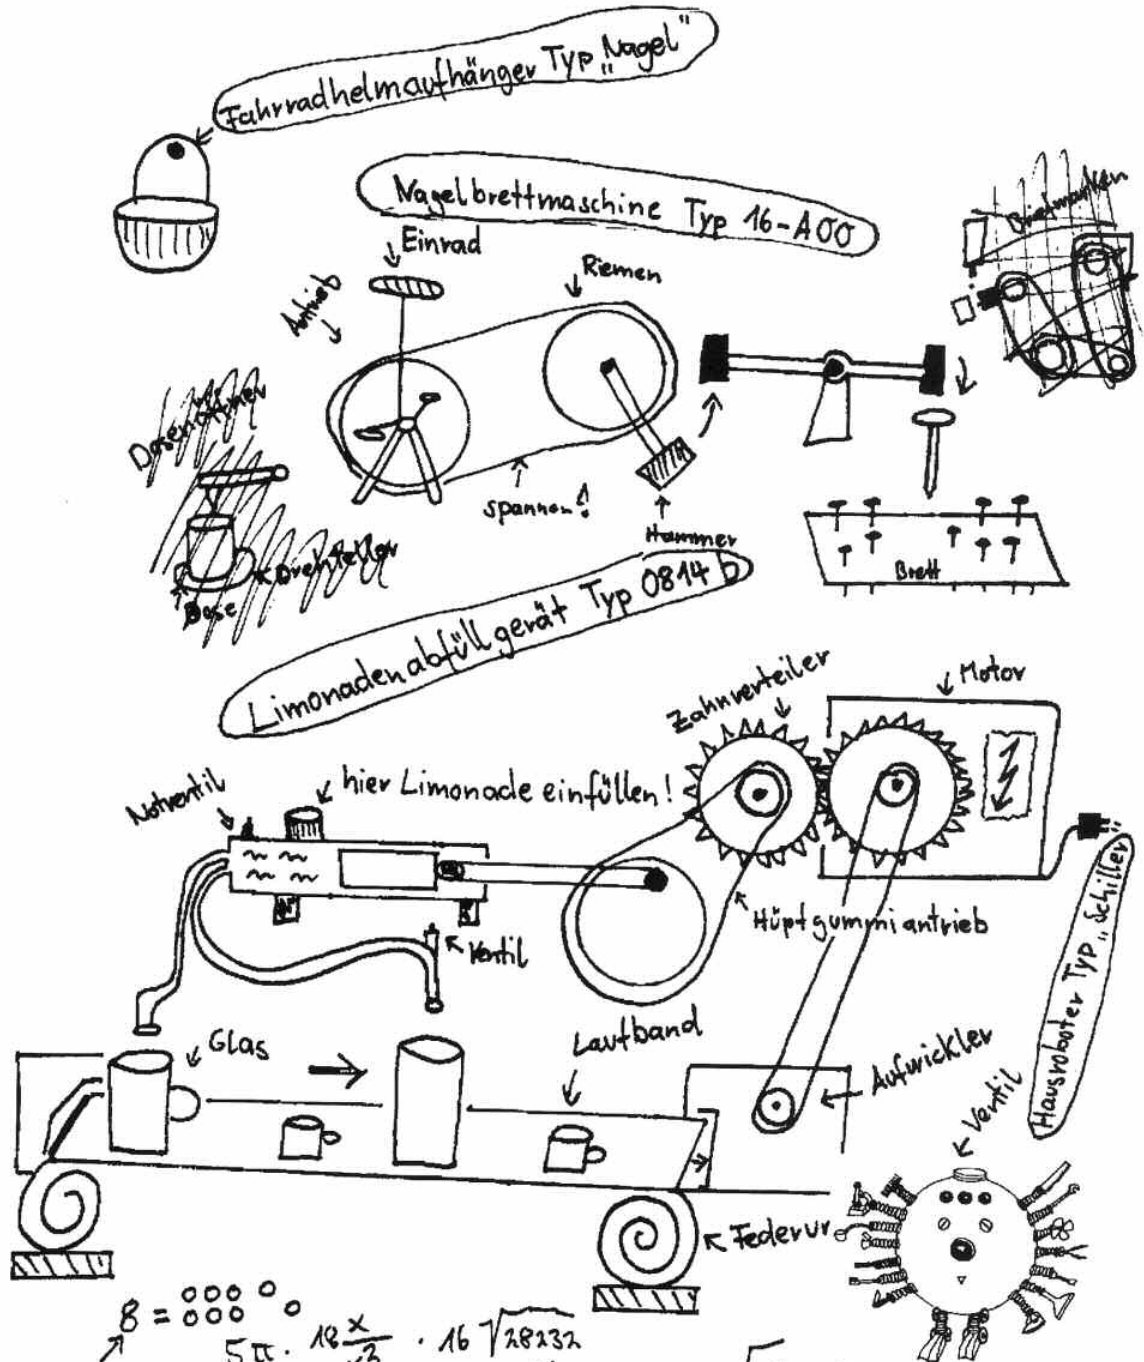 Fahrradhelmaufhänger Typ „Nagel“
Nagelbrettmaschine Typ 16-A00
Briefmarken
Einrad
Riemen
Antrieb
Dosenöffner
spannen!
Hammer
Drehteller
Dose
Brett
Limonadenabfüllgerät Typ 0814b
Zahnverteiler
Motor
Notventil
hier Limonade einfüllen!
Hüpfgummiantrieb
Ventil
Hausroboter Typ „Schiller“
Glas
Laufband
Aufwickler
Ventil
Federung
8 =
5π · 18 x · 16 √28232